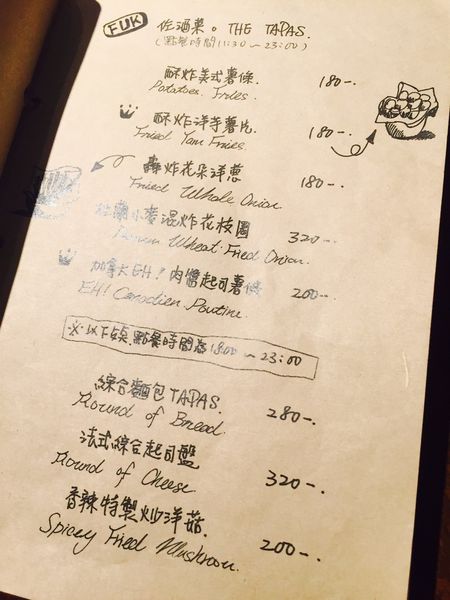 FUK 佐酒菜。THE TAPAS.
(點餐時間11:30~23:00)
酥炸美式薯條 180-.
Potatoes Fries.
酥炸洋芋薯片 180-.
Fried Yam Fries.
轟炸花朵洋蔥 180-.
Fried Whole Onion
小麥混炸花枝圈 320-.
Wheat Fried Onion.
加拿大EH!肉醬起司薯條 200-.
EH! Canadien Poutine.
※以下餐點點餐時間為18:00~23:00
綜合麵包TAPAS. 280-.
Round of Bread.
法式綜合起司盤 320-.
Round of Cheese
香辣特製炒洋菇. 200-.
Spicey Fried Mushroom.